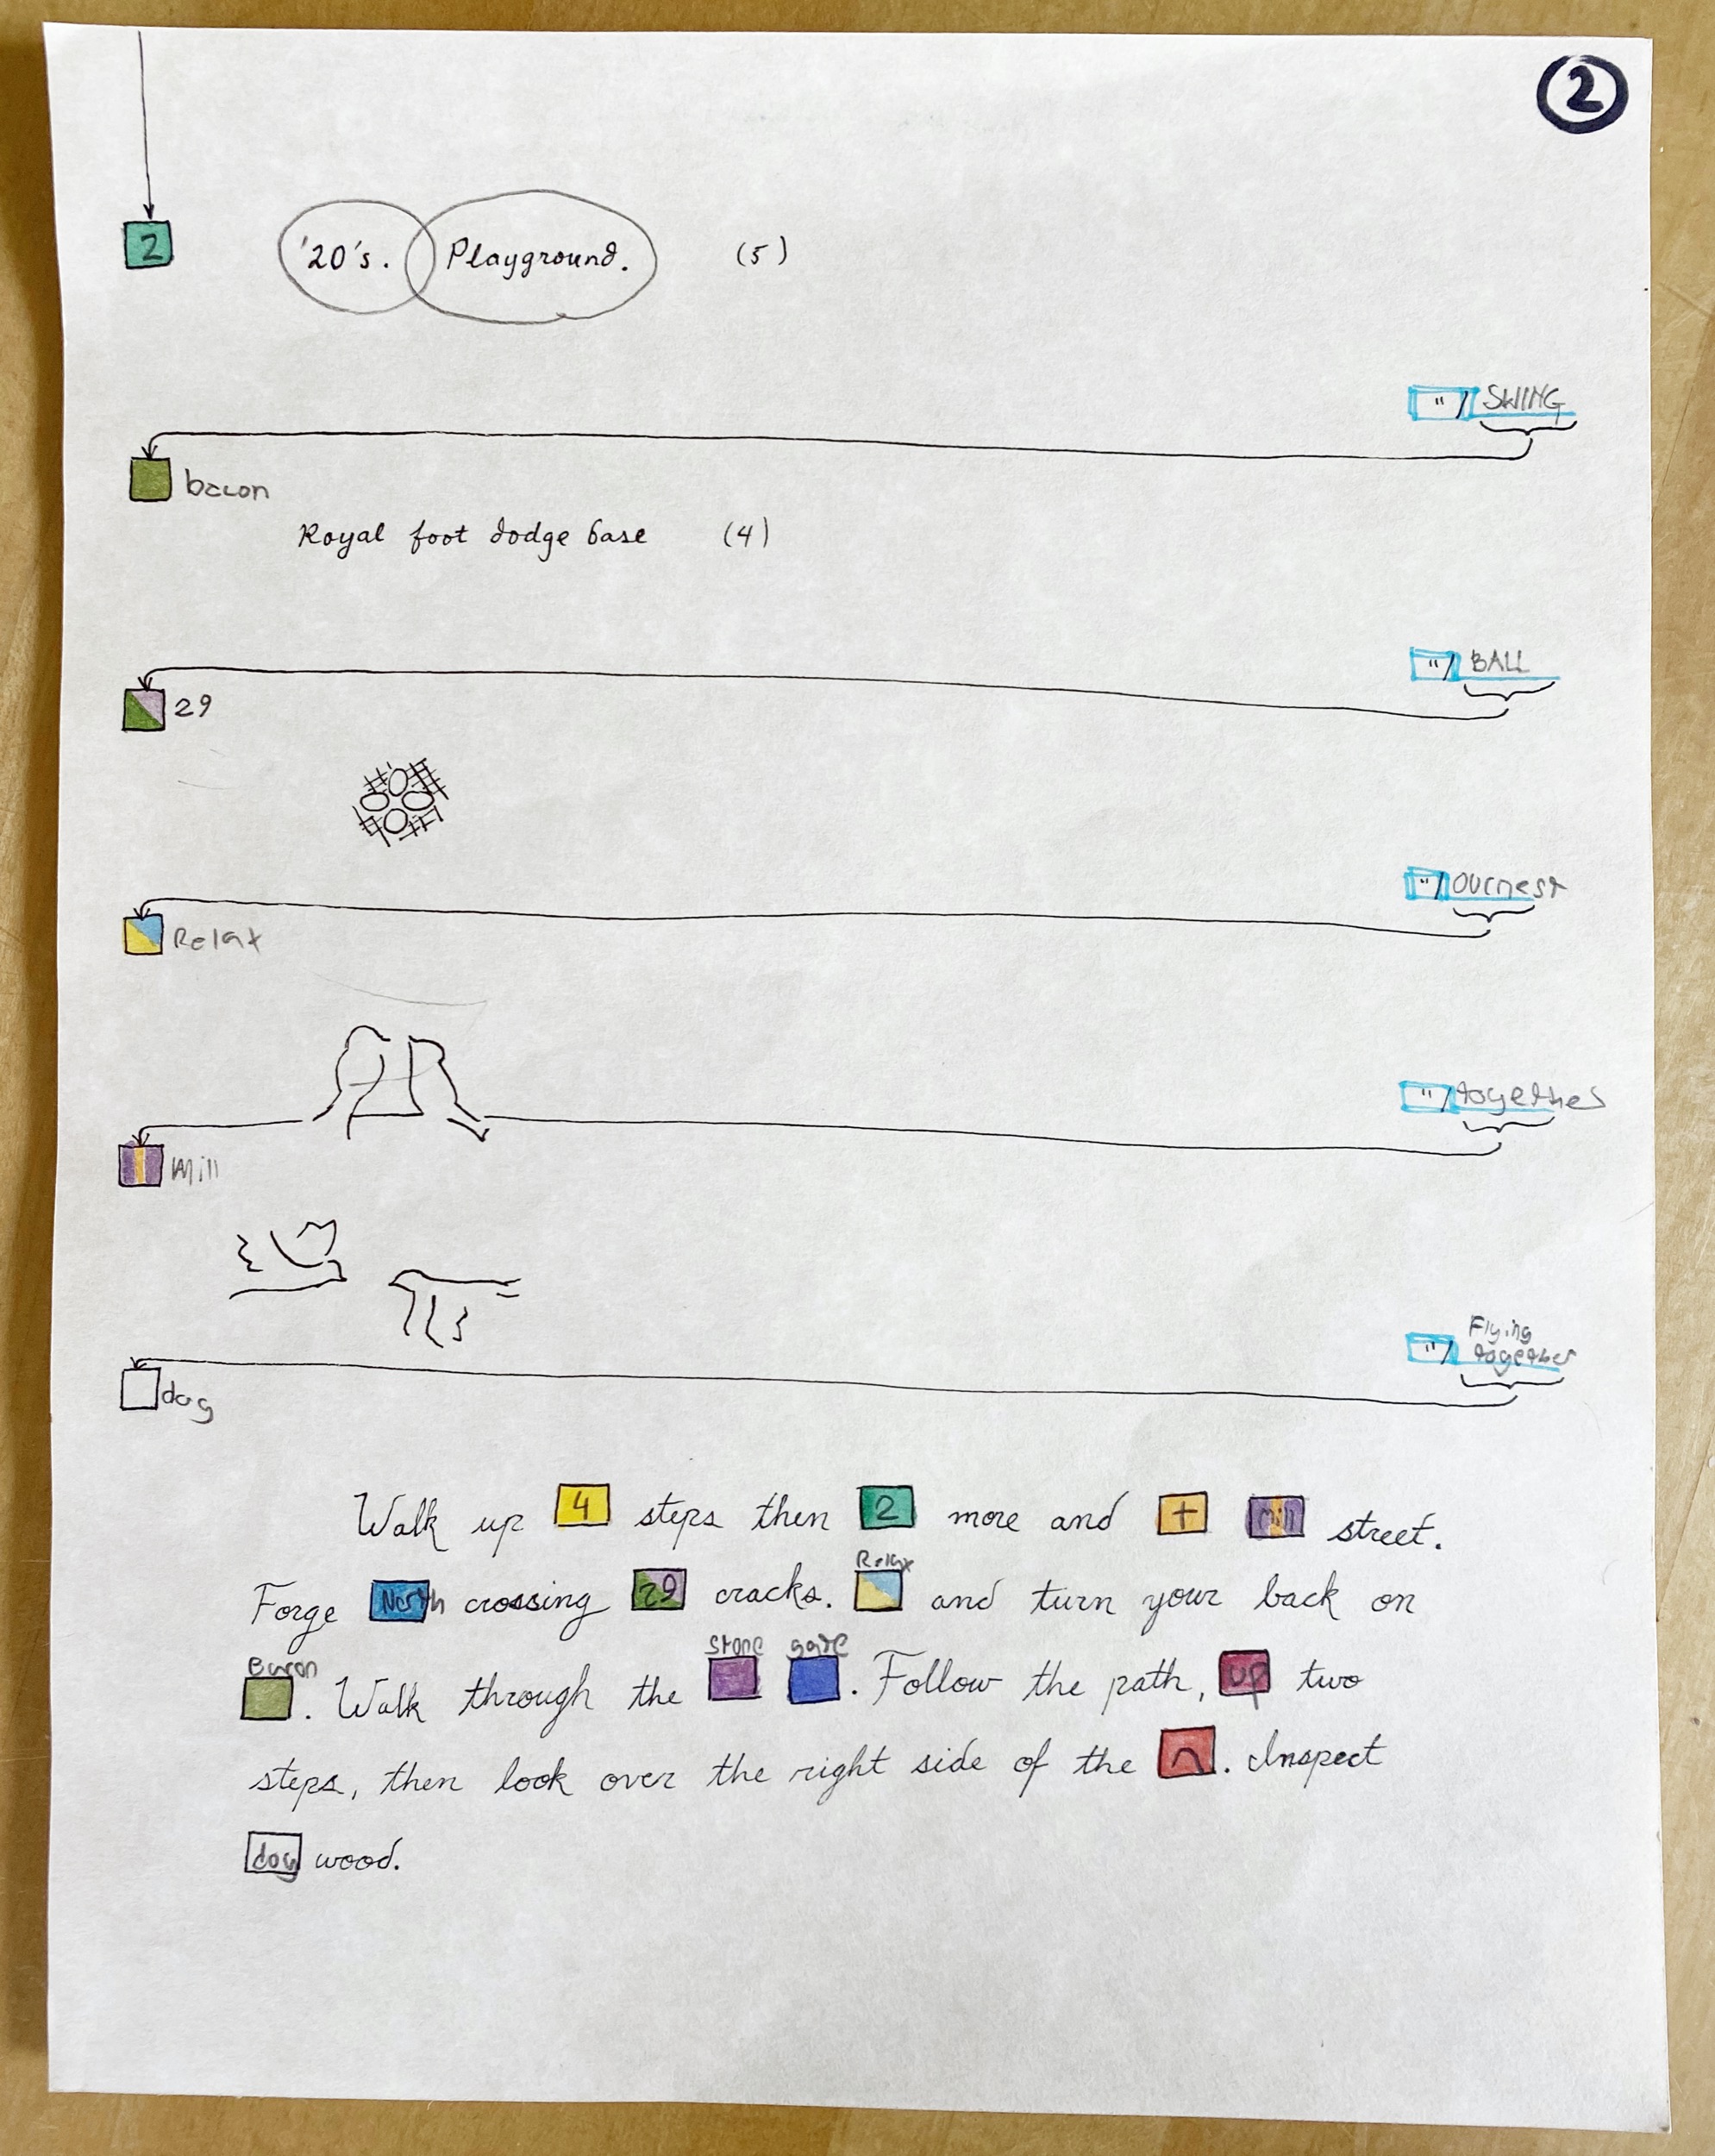 2
2 '20's. Playground. (5)
"/ SWING
bacon
Royal foot dodge base (4)
"/ BALL
29
"/ ournest
Relax
"/ together
Mill
"/ Flying together
dog
Walk up 4 steps then 2 more and + Mill street.
Relax
Forge North crossing 29 cracks. and turn your back on
Bacon stone gate
. Walk through the . Follow the path, up two
steps, then look over the right side of the ∩. Inspect
dog wood.